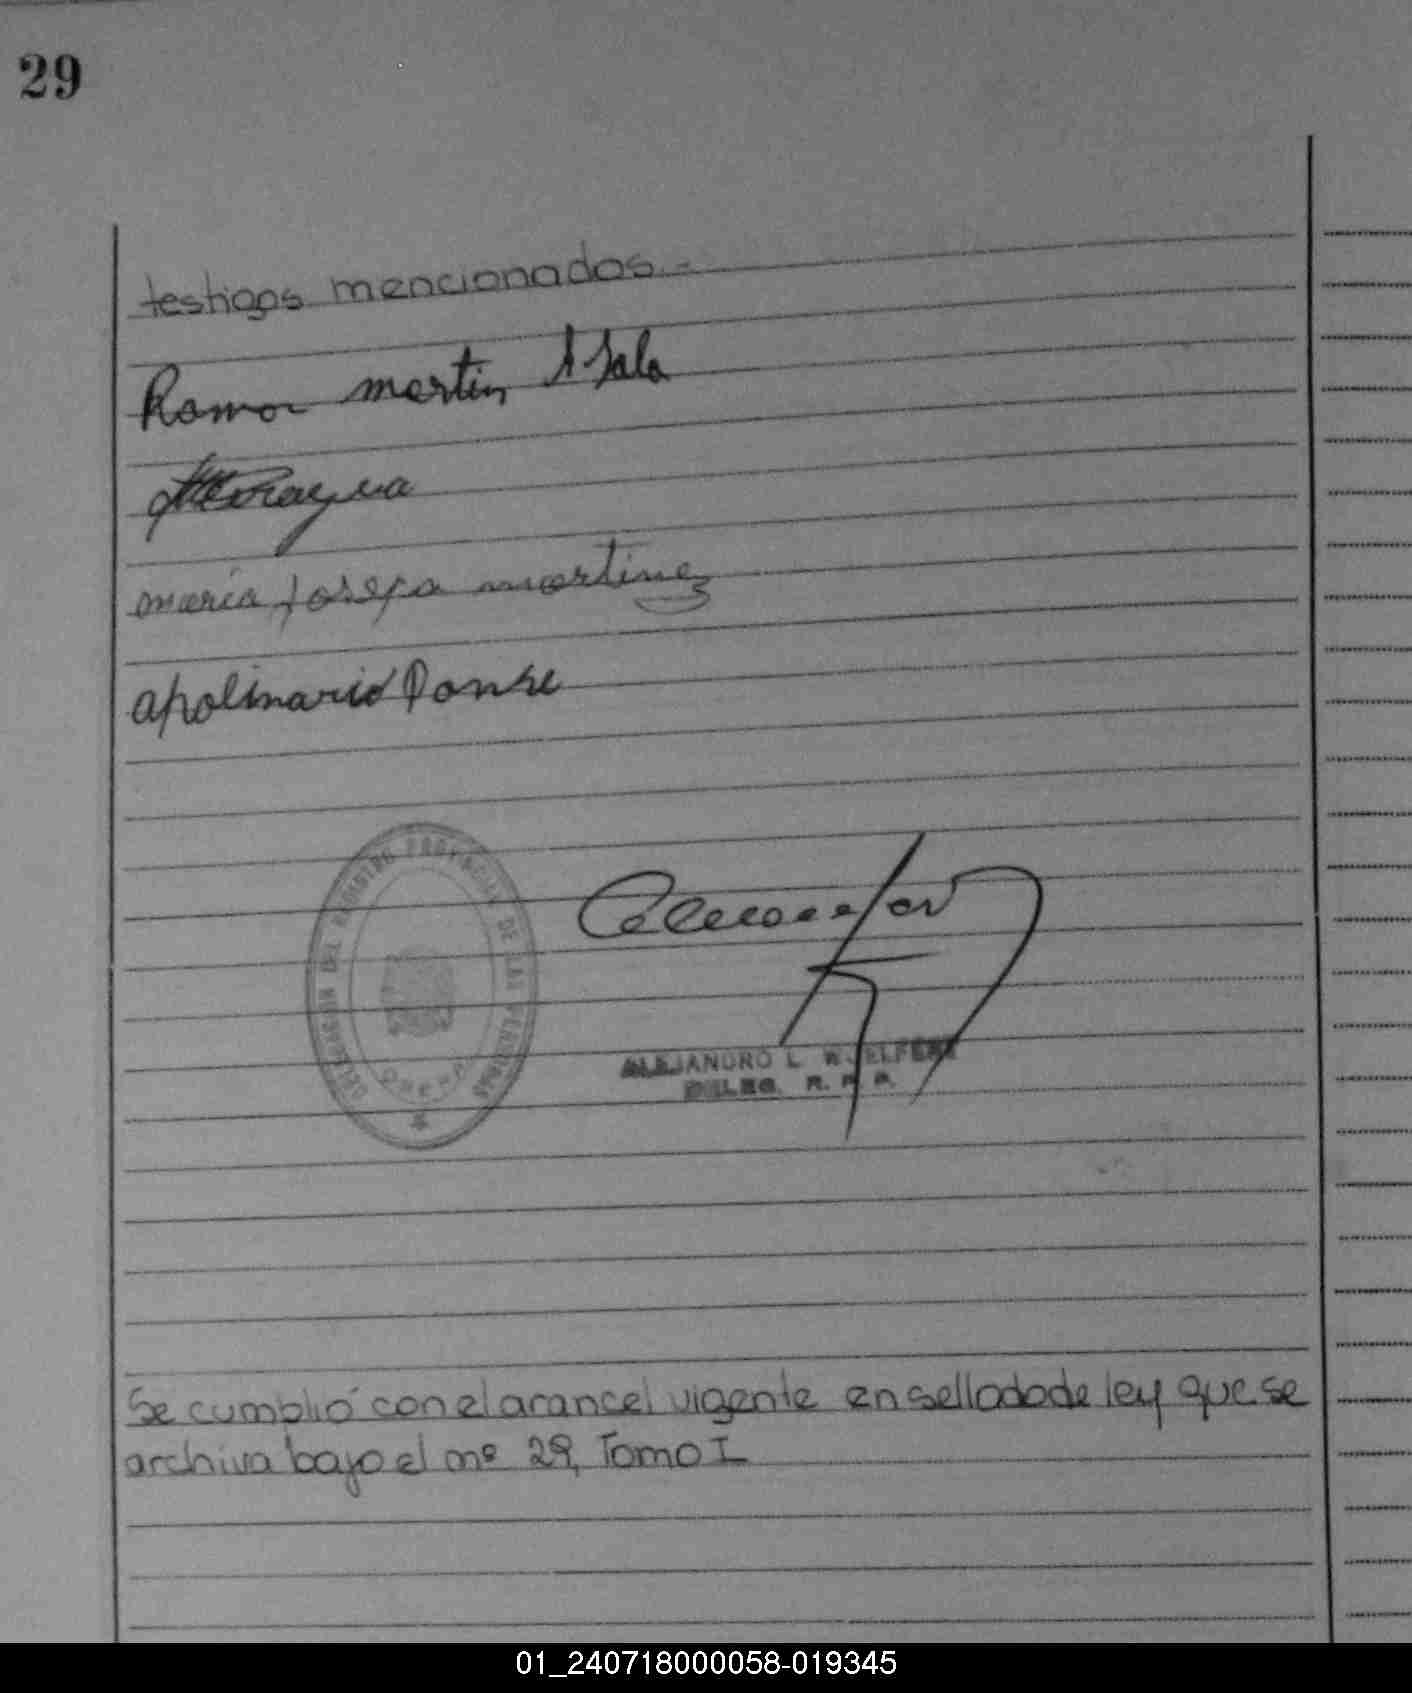 29
testigos mencionados.-
Ramon martin Ayala
maria Josefa martinez
apolinario Ponse
DELEGACION DEL REGISTRO PROVINCIAL DE LAS PERSONAS
ALEJANDRO L.
DELEG. R. P. P.
Se cumplió con el arancel vigente en sellado de ley que se
archiva bajo el nº 29, Tomo I
01_240718000058-019345